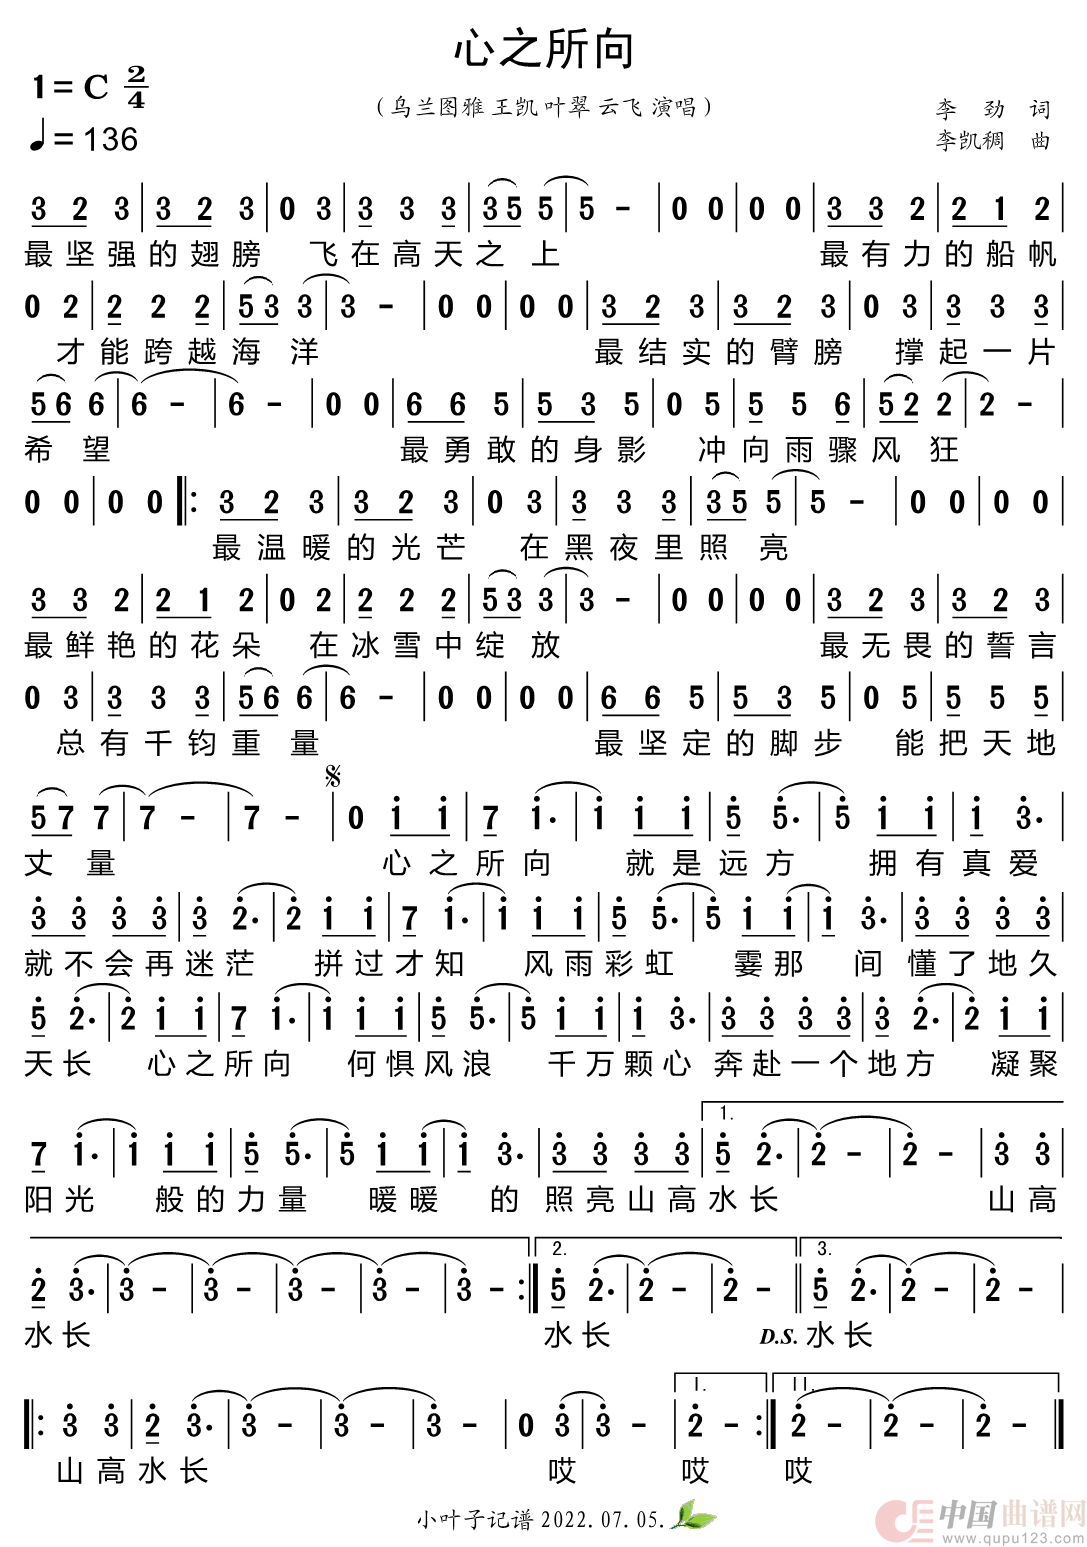 心之所向
1=C 2/4
（乌兰图雅 王凯 叶翠 云飞 演唱）
李 劲 词
♩=136
李凯稠 曲
3 2 3 | 3 2 3 | 0 3 | 3 3 3 | 3 5 5 | 5 - | 0 0 | 0 0 | 3 3 2 | 2 1 2 |
最坚强的翅膀 飞在高天之上 最有力的船帆
0 2 | 2 2 2 | 5 3 3 | 3 - | 0 0 | 0 0 | 3 2 3 | 3 2 3 | 0 3 | 3 3 3 |
才能跨越海洋 最结实的臂膀 撑起一片
5 6 6 | 6 - | 6 - | 0 0 | 6 6 5 | 5 3 5 | 0 5 | 5 5 6 | 5 2 2 | 2 - |
希望 最勇敢的身影 冲向雨骤风狂
0 0 | 0 0 ‖: 3 2 3 | 3 2 3 | 0 3 | 3 3 3 | 3 5 5 | 5 - | 0 0 | 0 0 |
最温暖的光芒 在黑夜里照亮
3 3 2 | 2 1 2 | 0 2 | 2 2 2 | 5 3 3 | 3 - | 0 0 | 0 0 | 3 2 3 | 3 2 3 |
最鲜艳的花朵 在冰雪中绽放 最无畏的誓言
0 3 | 3 3 3 | 5 6 6 | 6 - | 0 0 | 0 0 | 6 6 5 | 5 3 5 | 0 5 | 5 5 5 |
总有千钧重量 最坚定的脚步 能把天地
𝄋
5 7 7 | 7 - | 7 - | 0 1̇ 1̇ | 7 1̇· | 1̇ 1̇ 1̇ | 5̇ 5̇· | 5̇ 1̇ 1̇ | 1̇ 3̇· |
丈量 心之所向 就是远方 拥有真爱
3̇ 3̇ 3̇ 3̇ | 3̇ 2̇· | 2̇ 1̇ 1̇ | 7 1̇· | 1̇ 1̇ 1̇ | 5̇ 5̇· | 5̇ 1̇ 1̇ | 1̇ 3̇· | 3̇ 3̇ 3̇ 3̇ |
就不会再迷茫 拼过才知 风雨彩虹 霎那 间 懂了地久
5̇ 2̇· | 2̇ 1̇ 1̇ | 7 1̇· | 1̇ 1̇ 1̇ | 5̇ 5̇· | 5̇ 1̇ 1̇ | 1̇ 3̇· | 3̇ 3̇ 3̇ 3̇ | 3̇ 2̇· | 2̇ 1̇ 1̇ |
天长 心之所向 何惧风浪 千万颗心 奔赴一个地方 凝聚
1.
7 1̇· | 1̇ 1̇ 1̇ | 5̇ 5̇· | 5̇ 1̇ 1̇ | 1̇ 3̇· | 3̇ 3̇ 3̇ 3̇ | 5̇ 2̇· | 2̇ - | 2̇ - | 3̇ 3̇ |
阳光 般的力量 暖暖 的 照亮山高水长 山高
2. 3.
2̇ 3̇· | 3̇ - | 3̇ - | 3̇ - | 3̇ - | 3̇ - :‖ 5̇ 2̇· | 2̇ - | 2̇ - ‖ 5̇ 2̇· | 2̇ - | 2̇ - |
水长 水长 D.S. 水长
I. II.
‖: 3̇ 3̇ | 2̇ 3̇· | 3̇ - | 3̇ - | 3̇ - | 3̇ - | 0 3̇ | 3̇ - | 2̇ - :‖ 2̇ - | 2̇ - | 2̇ - ‖
山高水长 哎 哎 哎
小叶子记谱 2022.07.05.
中国曲谱网
www.qupu123.com